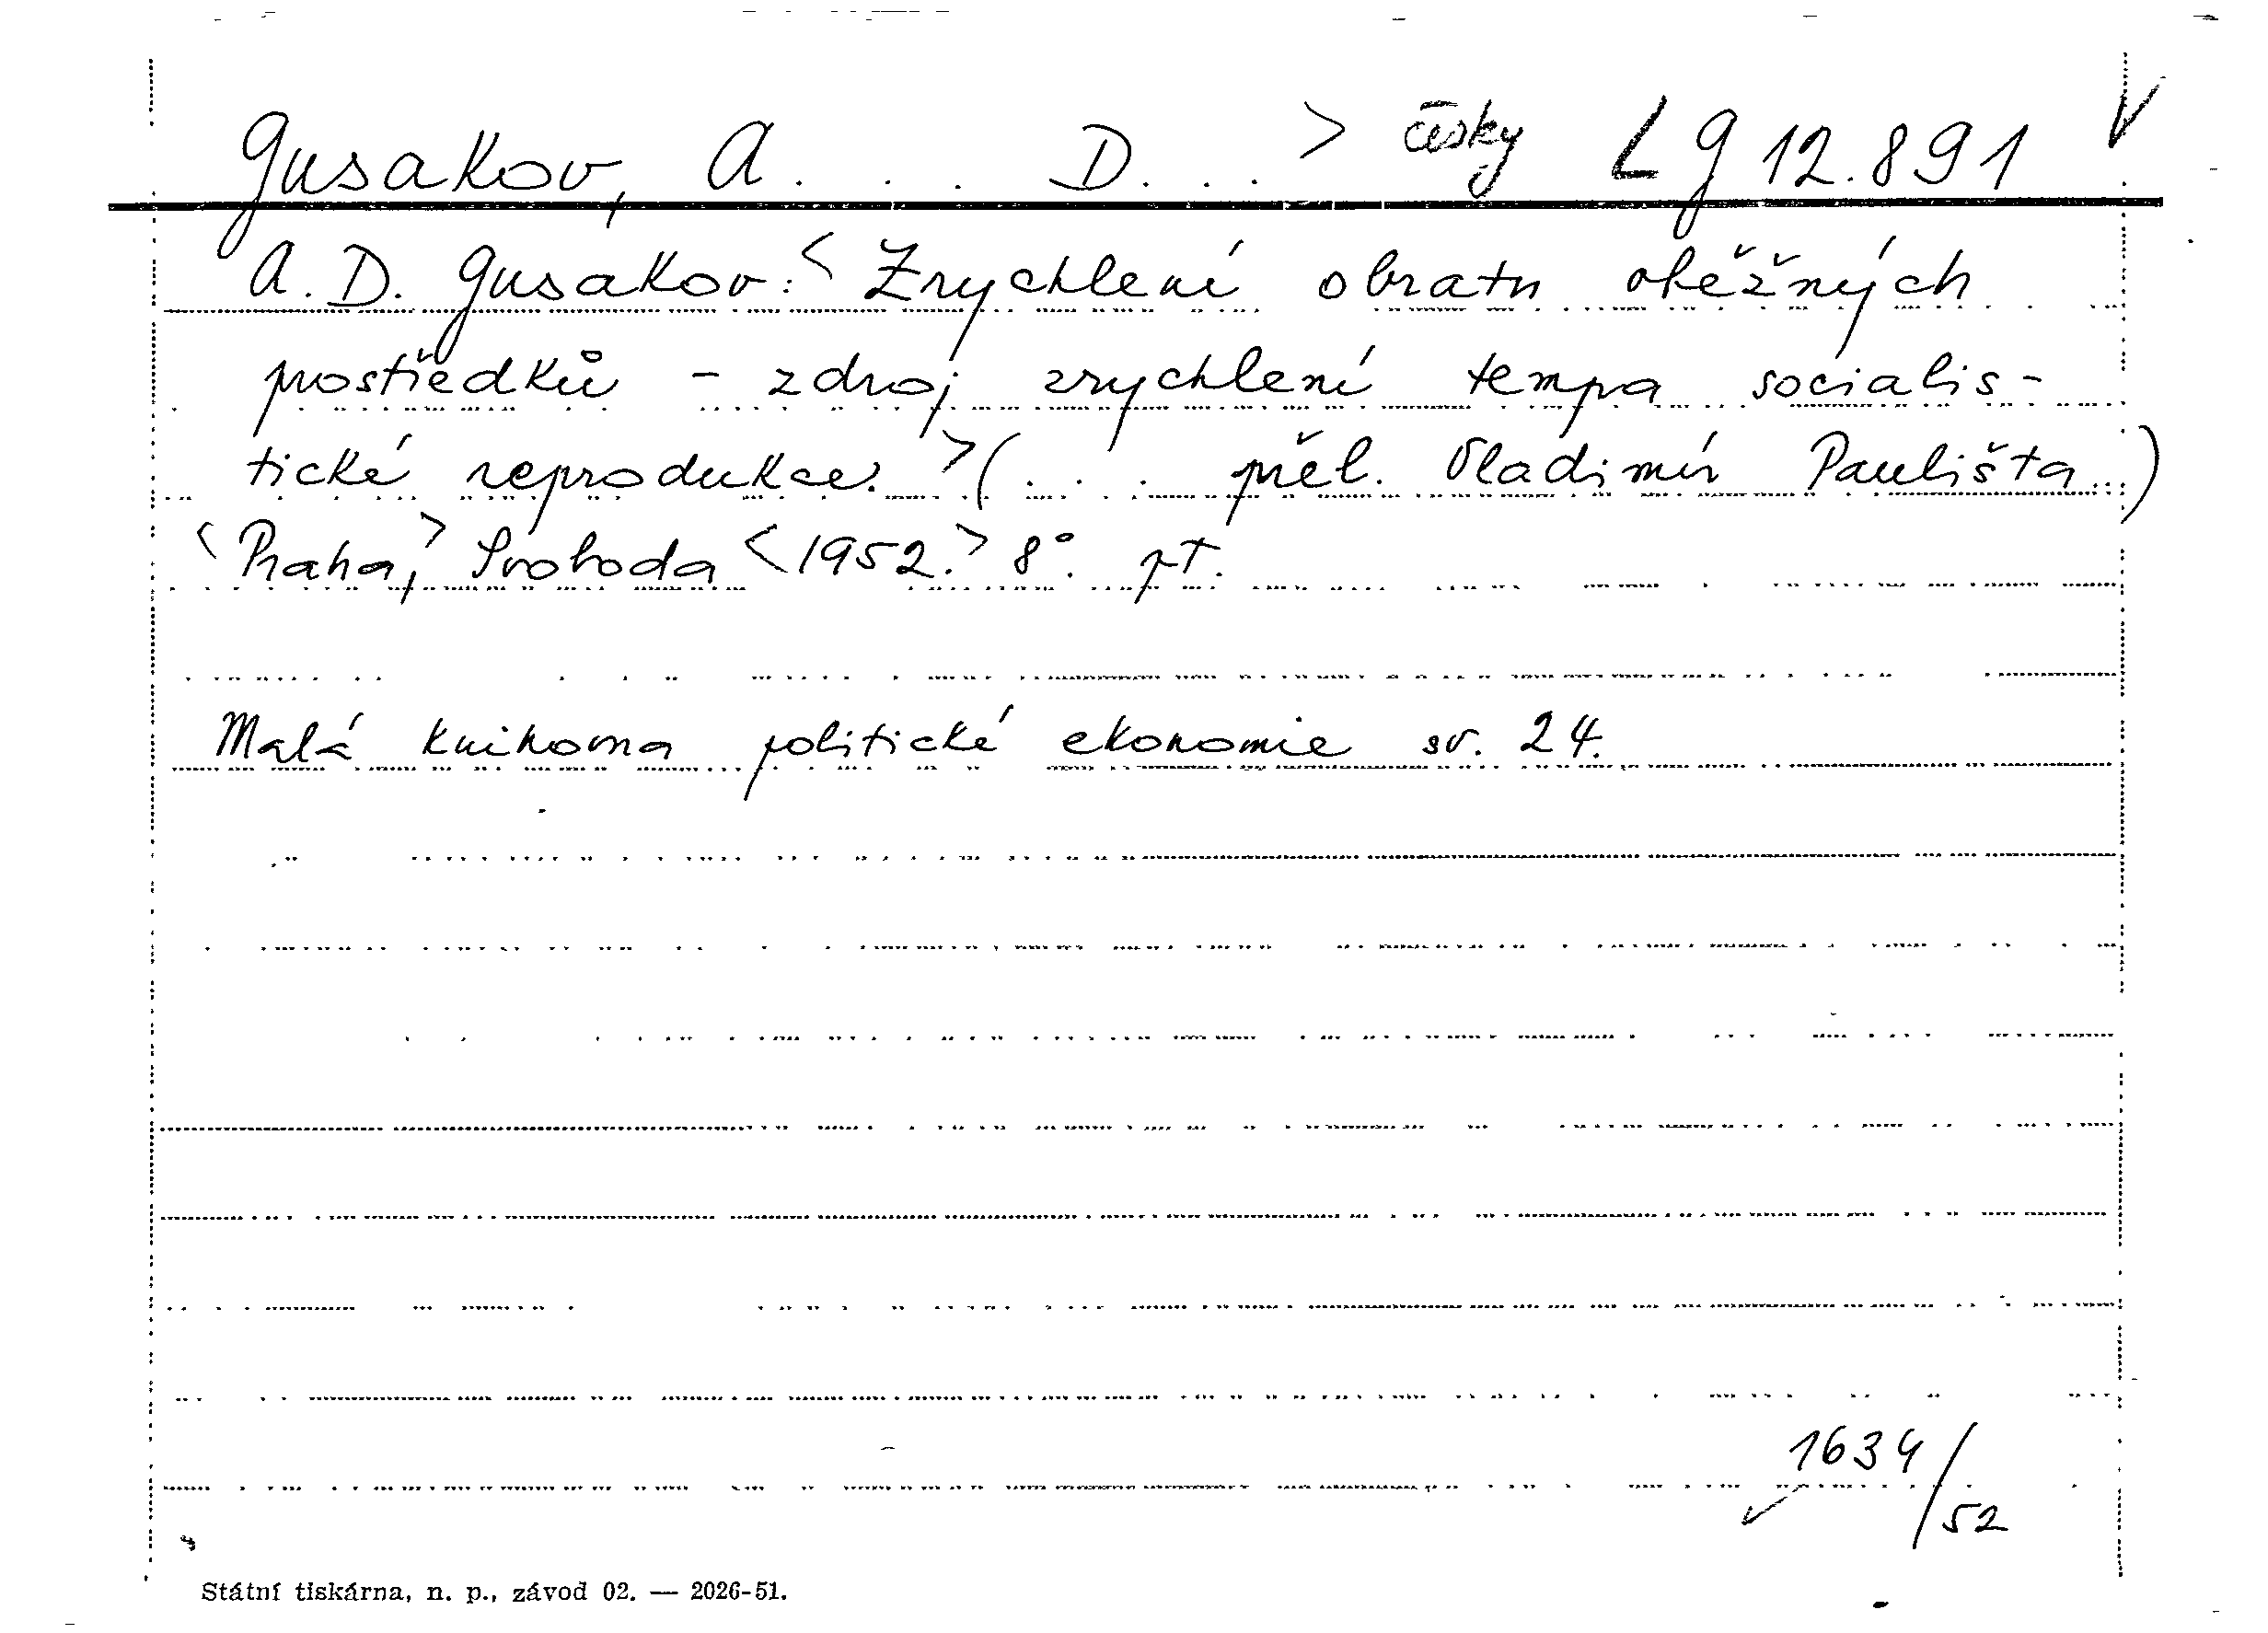 Gusakov, A . . . D. . . > česky Lg 12.891 V
A. D. Gusakov: < Zrychlení obratu oběžných
prostředků - zdroj zrychlení tempa socialis-
tické reprodukce. > (. . . přel. Vladimír Paulišta..)
<Praha,> Svoboda <1952.> 8°. pt.
Malá knihovna politické ekonomie sv. 24.
1634/52
Státní tiskárna, n. p., závod 02. — 2026-51.